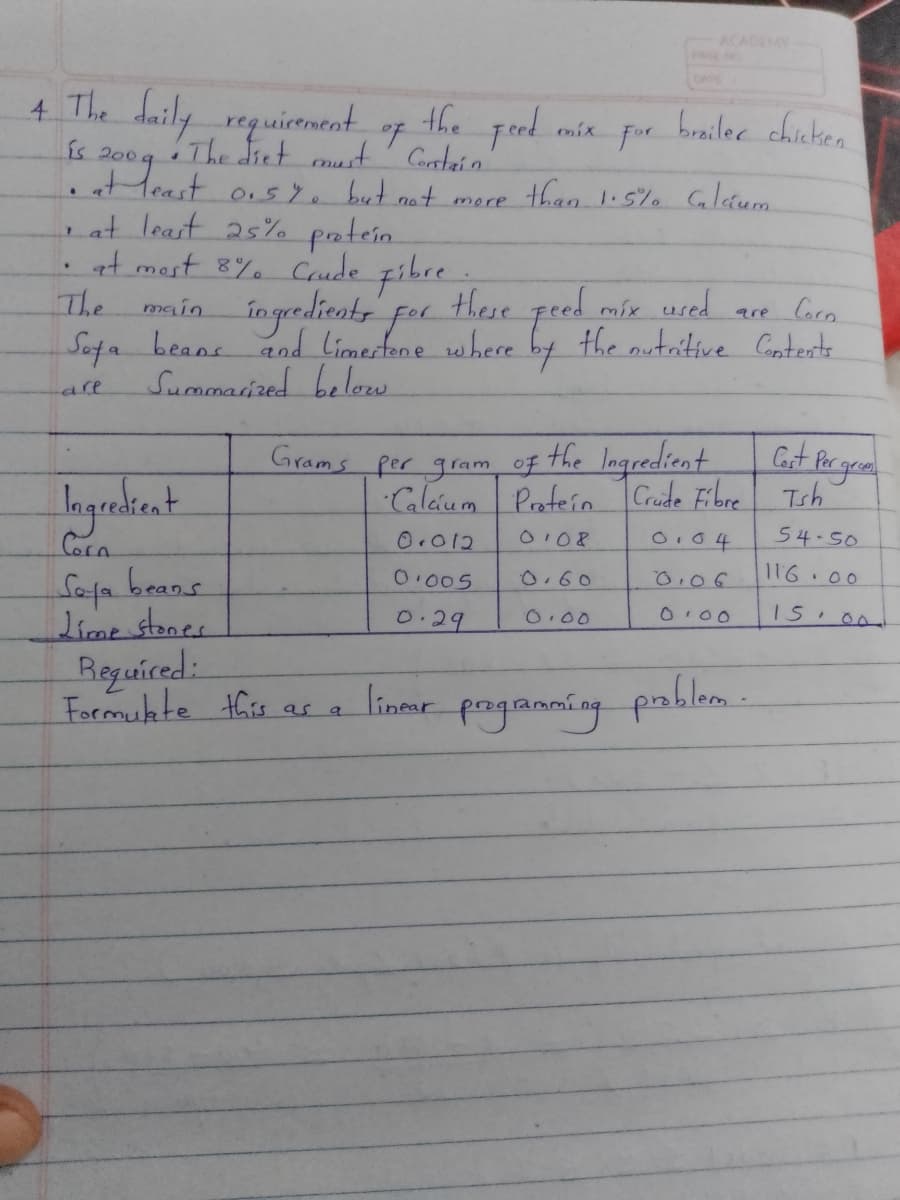 ACADEMY
PAGE NO.
DATE
4 The daily requirement of the feed mix for broiler chicken
is 200g. The diet must Contain
• at least 0.5% but not more than 1.5% Calcium
• at least 25% protein
• at most 8% Crude fibre.
The main ingredients for these feed mix used are Corn
Soya beans and limestone where by the nutritive Contents
are Summarized below
Grams per gram of the Ingredient Cost Per gram
Ingredient Calcium Protein Crude Fibre Tsh
Corn 0.012 0.08 0.04 54.50
Soya beans 0.005 0.60 0.06 116.00
Lime stones 0.29 0.00 0.00 15.00
Required:
Formulate this as a linear programming problem.